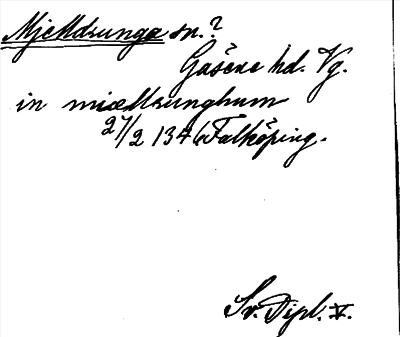 Mjelldrunga sn.?
Gäsene hd. Vg.
in miælldrunghum
27/2 1346 Falköping.
Sv. Dipl. V.